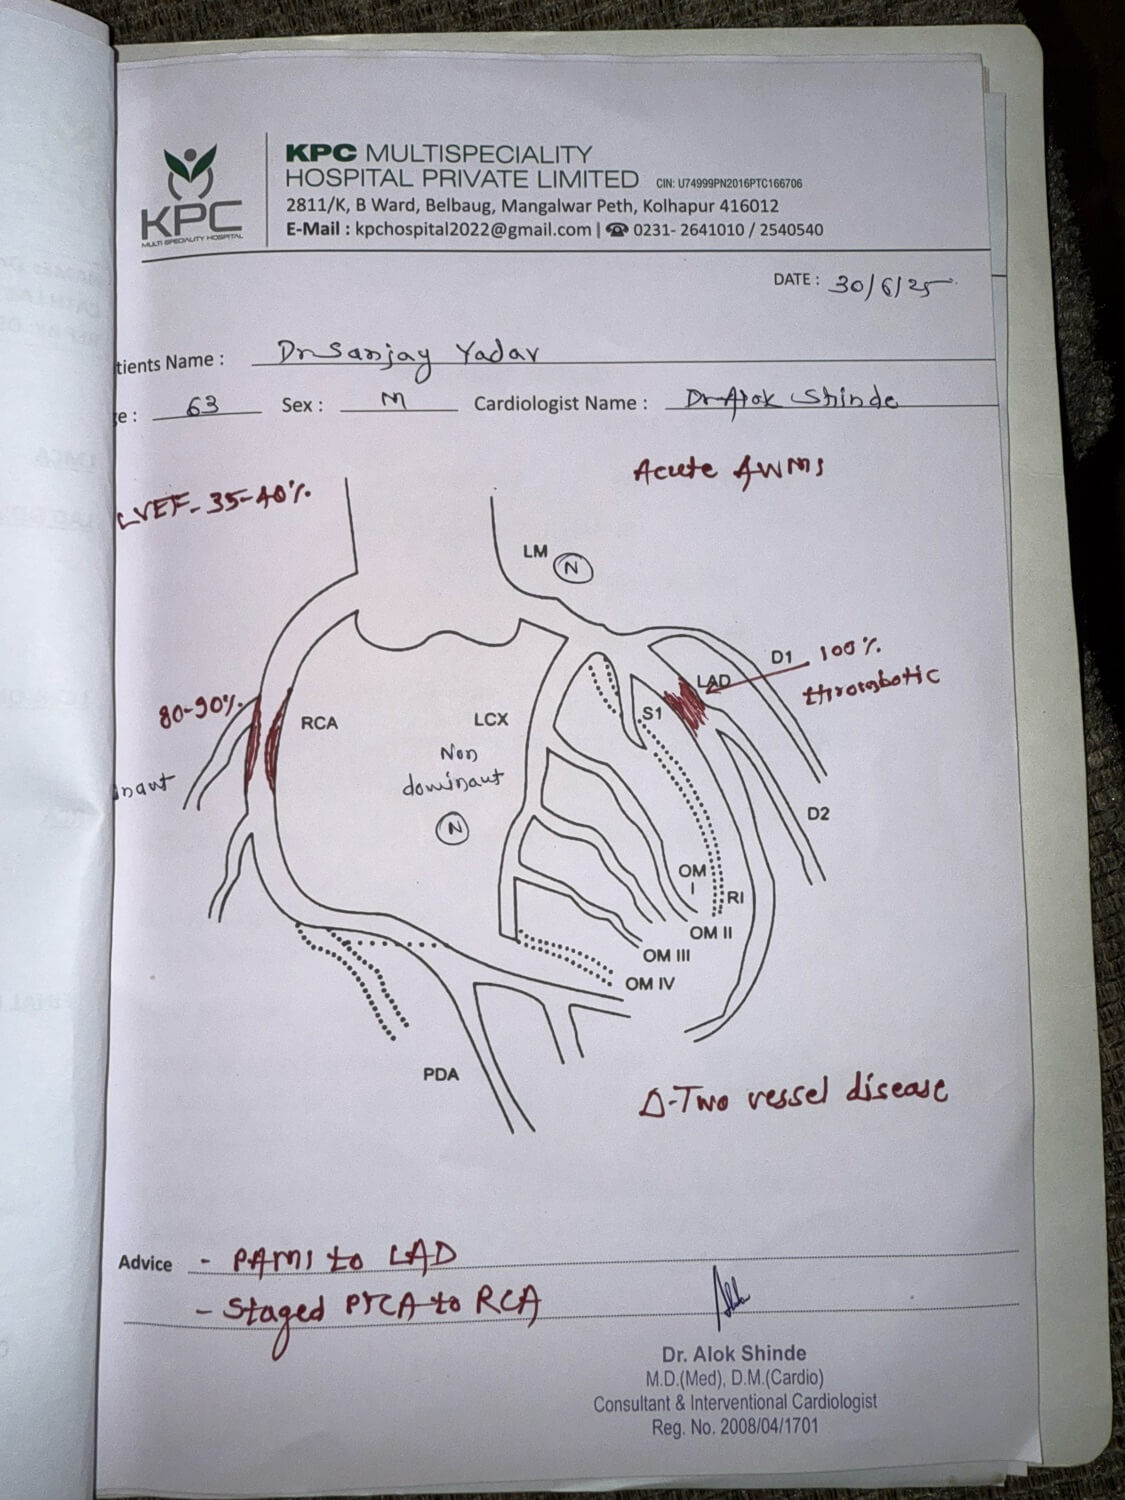 KPC MULTISPECIALITY
HOSPITAL PRIVATE LIMITED CIN: U74999PN2016PTC166706
2811/K, B Ward, Belbaug, Mangalwar Peth, Kolhapur 416012
E-Mail : kpchospital2022@gmail.com | ☎ 0231- 2641010 / 2540540
KPC
MULTI SPECIALITY HOSPITAL
DATE : 30/6/25
tients Name : Dr Sanjay Yadav
ge : 63 Sex : M Cardiologist Name : Dr Alok Shinde
Acute AWMI
LVEF - 35-40%.
LM N
D1 100%
thrombotic
LAD
80-90%.
S1
RCA
LCX
Non
dominant
inant
N
D2
OM
I
RI
OM II
OM III
OM IV
PDA
Δ-Two vessel disease
Advice - PAMI to LAD
- Staged PTCA to RCA
Dr. Alok Shinde
M.D.(Med), D.M.(Cardio)
Consultant & Interventional Cardiologist
Reg. No. 2008/04/1701